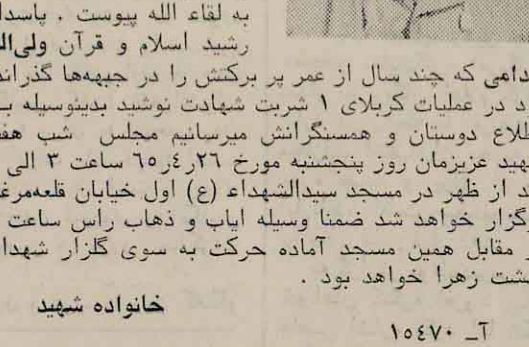 به لقاء الله پیوست . پاسدا
رشید اسلام و قرآن ولی‌ال
دامی که چند سال از عمر پر برکتش را در جبهه‌ها گذراند
د در عملیات کربلای ۱ شربت شهادت نوشید بدینوسیله ب
طلاع دوستان و همسنگرانش میرسانیم مجلس شب هف
هید عزیزمان روز پنجشنبه مورخ ۲۶ر۴ر۶۵ ساعت ۳ الی
د از ظهر در مسجد سیدالشهداء (ع) اول خیابان قلعه‌مرغ
رگزار خواهد شد ضمنا وسیله ایاب و ذهاب راس ساعت
ر مقابل همین مسجد آماده حرکت به سوی گلزار شهدا
شت زهرا خواهد بود .
خانواده شهید
آ_ ۱۵۴۷۰